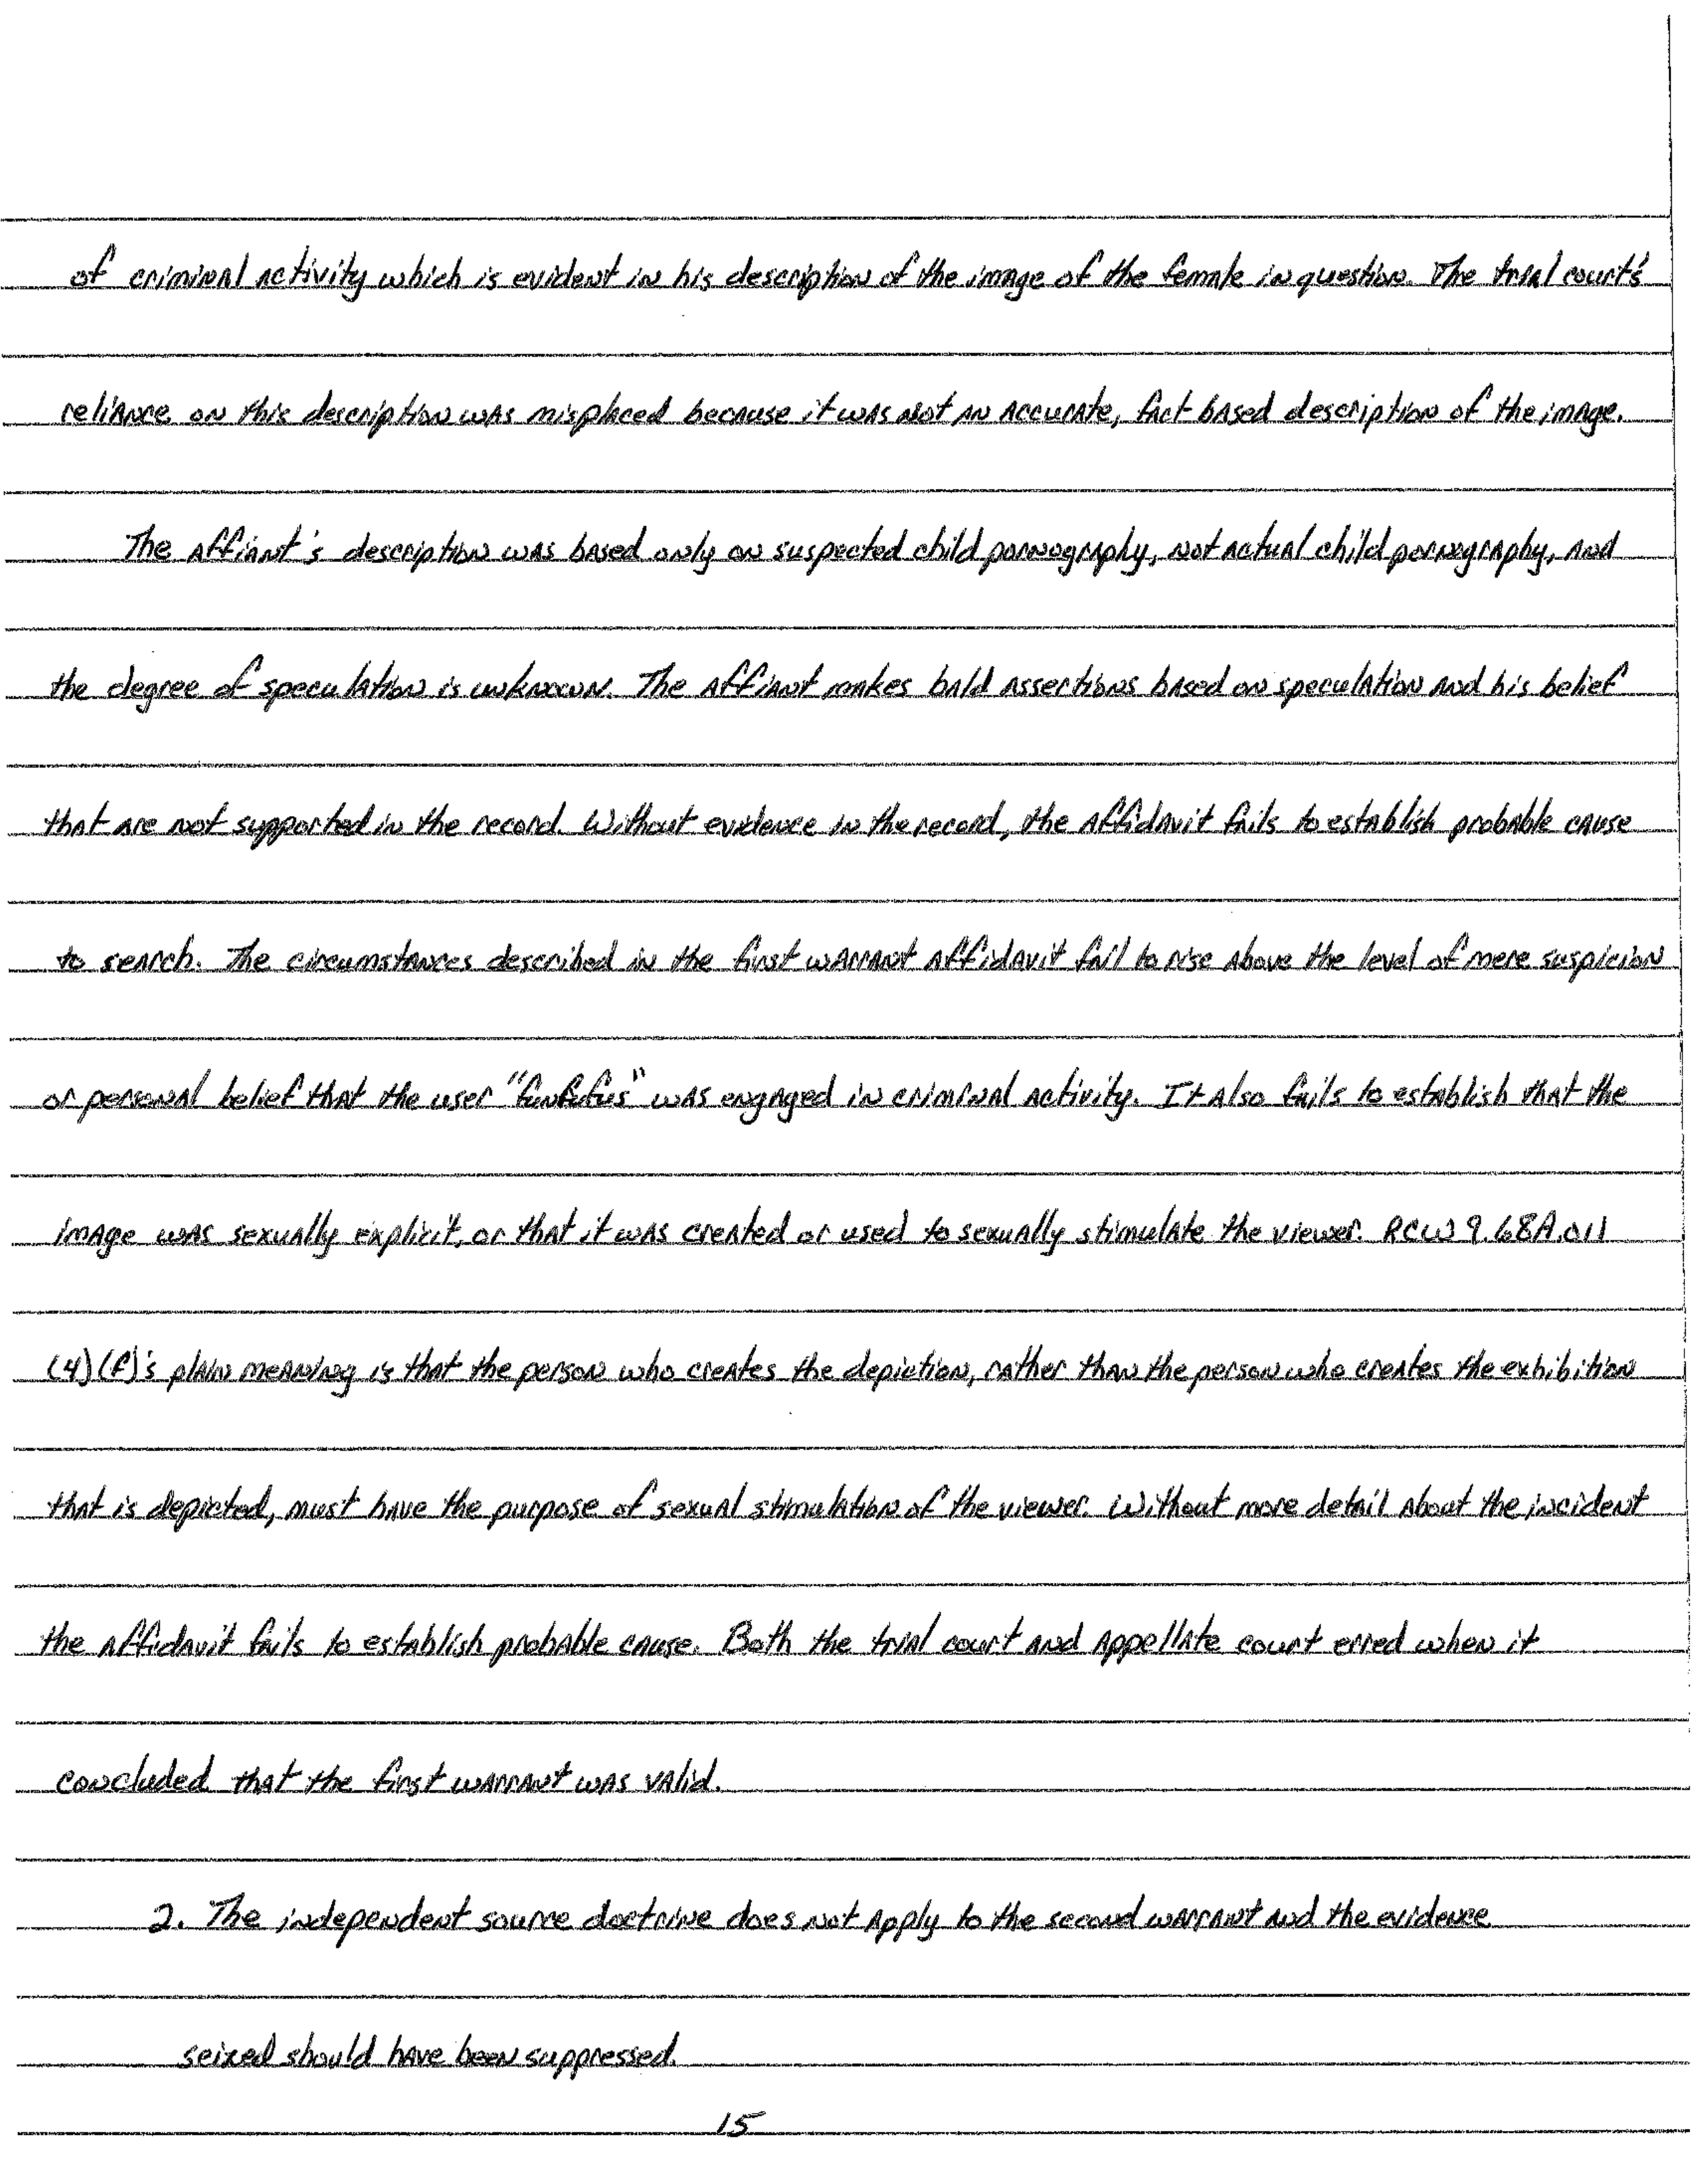 of criminal activity which is evident in his description of the image of the female in question. The trial court's
reliance on this description was misplaced because it was not an accurate, fact based description of the image.
The affiant's description was based only on suspected child pornography, not actual child pornography, and
the degree of speculation is unknown. The affiant makes bald assertions based on speculation and his belief
that are not supported in the record. Without evidence in the record, the affidavit fails to establish probable cause
to search. The circumstances described in the first warrant affidavit fail to rise above the level of mere suspicion
or personal belief that the user "funfufus" was engaged in criminal activity. It also fails to establish that the
image was sexually explicit, or that it was created or used to sexually stimulate the viewer. RCW 9.68A.011
(4)(f)'s plain meaning is that the person who creates the depiction, rather than the person who creates the exhibition
that is depicted, must have the purpose of sexual stimulation of the viewer. Without more detail about the incident
the affidavit fails to establish probable cause. Both the trial court and appellate court erred when it
concluded that the first warrant was valid.
2. The independent source doctrine does not apply to the second warrant and the evidence
seized should have been suppressed.
15